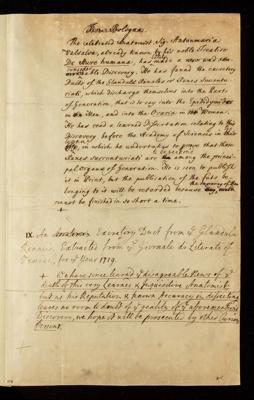 From Bologna
The celebrated Anatomist Sig. Antonmaria
Valsalva, already known by his noble Treatise
De Aure humana, has made a new and
Discovery. He has found the excretory
Ducts of the Glandulæ Renales or Renes Succentu-
riati, which discharge themselves into the Parts
of Generation, that is to say into the Epididymides
in the Men, and into the Ovaria in the Women.
He has read a learned Dissertation relating to this
Discovery before the Academy of Sciences in this
City, in which he undertakes to prove that these
Renes Succenturiati are among the princi-
pal Organs of Generation. He is soon to publish
it in Print, but the publication of the
longing to it will be retarded because
cannot be finished in so short a time.
IX. An Secretory Duct from yᵉ Glandula
Renalis, Extracted from yᵉ Giornale de Literati of
Venice, for yᵉ Year 1719.
+ We have since learned yᵉ disagreable News of yᵉ
Death of this very Learned & Inquisitive Anatomist
but as his Reputation & known Accuracy in dissecting
leaves no room to doubt of yᵉ reality of yᵉ aforementioned
Discovery, we hope it will be prosecuted by other Curious